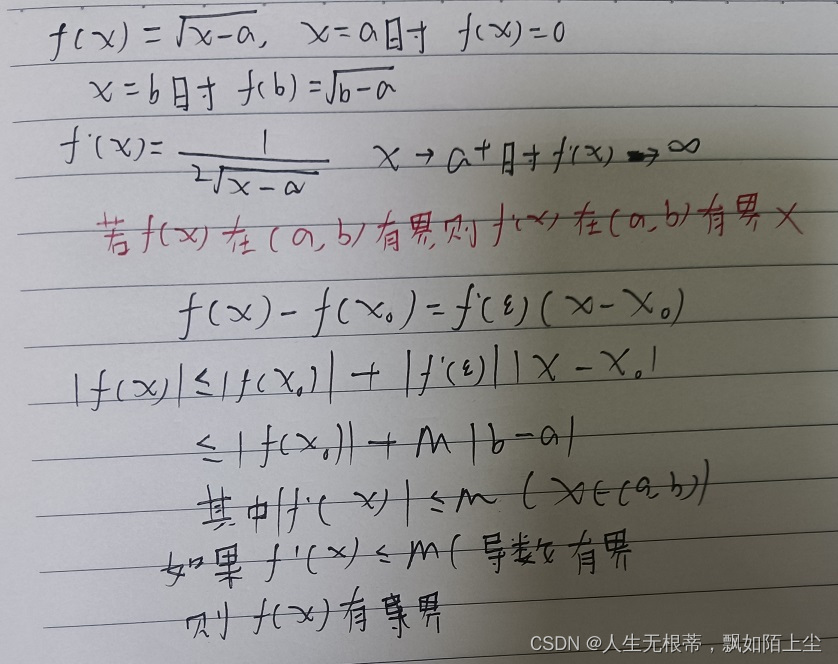 f(x)=√x-a, x=a时 f(x)=0
x=b时 f(b)=√b-a
f'(x)= 1/2√x-a x→a+时 f'(x)→∞
若f(x)在(a,b)有界,则f'(x)在(a,b)有界 ×
f(x)-f(x₀)=f'(ε)(x-x₀)
|f(x)|≤|f(x₀)|+|f'(ε)||x-x₀|
≤|f(x₀)|+M|b-a|
其中|f'(x)|≤M (x∈(a,b))
如果f'(x)≤M(导数有界
则f(x)有界
CSDN @人生无根蒂,飘如陌上尘